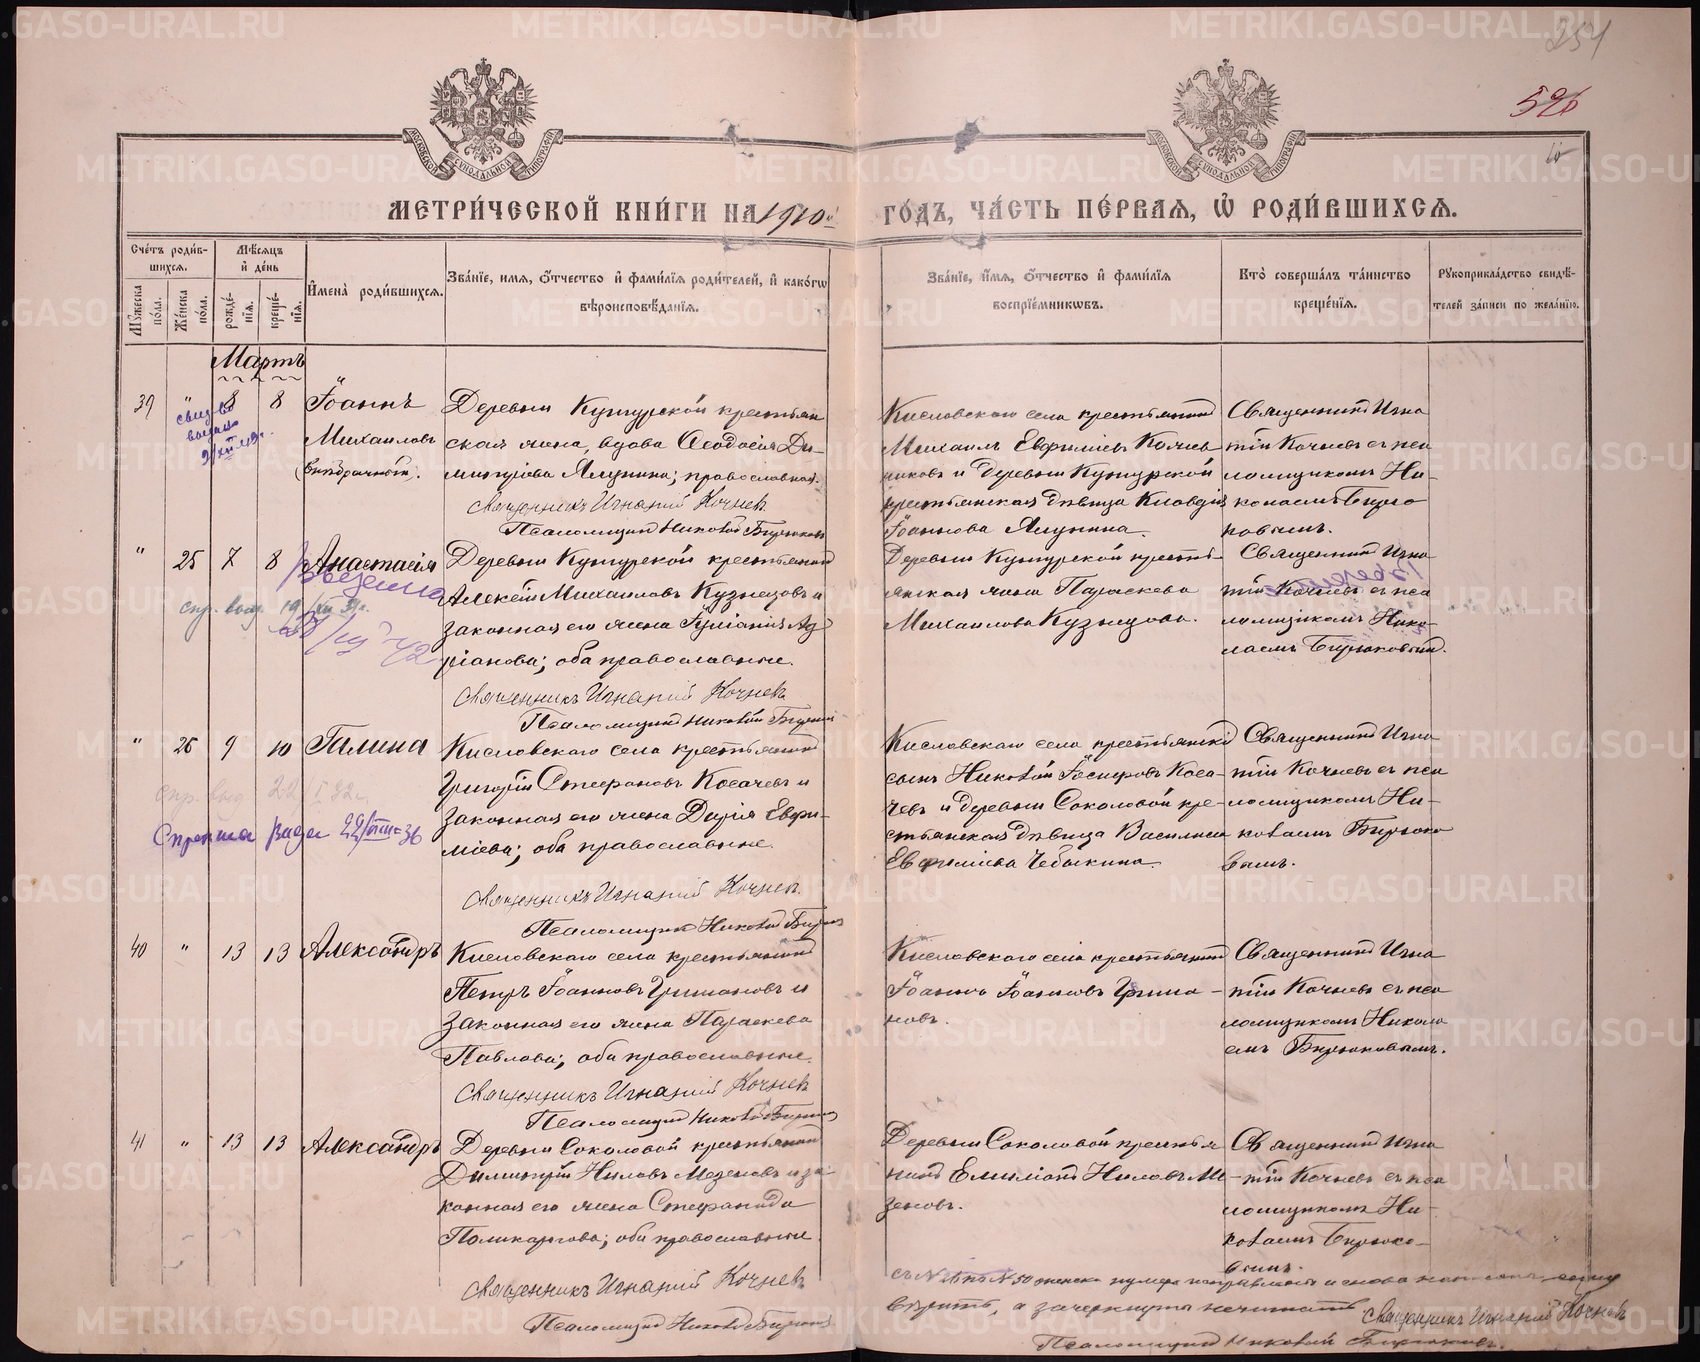 254
526
10
МЕТРИ́ЧЕСКОЙ КНИ́ГИ НА 1910й ГО́ДЪ, ЧА́СТЬ ПЕ́РВАЯ, Ѡ҆ РОДИ́ВШИХСЯ.
Сче́тъ роди́вшихся.
Мꙋ́жеска по́ла.
Же́нска по́ла.
Мѣ́сяцъ и҆ де́нь
рожде́нїѧ.
креще́нїѧ.
И҆мена̀ роди́вшихсѧ.
Зва́нїе, имѧ, ѻ҆́тчество и҆ фами́лїѧ роди́телей, и҆ како́гѡ
вѣроисповѣ́данїѧ.
Зва́нїе, и҆́мѧ, ѻ҆́тчество и҆ фами́лїѧ
воспрїе́мникѡвъ.
Кто̀ соверша́лъ та́инство
креще́нїѧ.
Рꙋкоприкла́дство свидѣ́-
телей за́писи по жела́нїю.
Мартъ
39 " 8 8
Іоаннъ
Михаиловъ
(внѣбрачный).
Деревни Кунгурской крестьян
ская жена, вдова Ѳеодосія Ди-
митріева Ялунина; православная.
Священникъ Игнатій Кочневъ
Псаломщикъ Николай Бирюковъ
Кисловскаго села крестьянинъ
Михаилъ Евфиміевъ
и деревни Кунгурской
крестьянская дѣвица Клавдія
Іоаннова Ялунина.
Священникъ Игна
тій Кочневъ съ пса
ломщикомъ Ни-
колаемъ Бирю
ковымъ.
" 25 7 8
Анастасія
Деревни Кунгурской крестьянинъ
Алексѣй Михаиловъ Кузнецовъ и
законная его жена Іуліанія Ад
ріанова; оба православные.
Священникъ Игнатій Кочневъ
Псаломщикъ Николай Бирюковъ
Деревни Кунгурской кресть-
янская жена Параскева
Михаилова Кузнецова.
Священникъ Игна
тій Кочневъ съ пса
ломщикомъ Нико-
лаемъ Бирюковымъ.
" 26 9 10
Галина
Справка выда 22/VIII-36
Кисловскаго села крестьянинъ
Григорій Стефановъ Косачевъ и
законная его жена Дарія Евфи-
міева; оба православные.
Священникъ Игнатій Кочневъ
Псаломщикъ Николай Бирюковъ
Кисловскаго села крестьянскій
сынъ Николай Коса-
чевъ и деревни Соколовой кре-
стьянская дѣвица Василиса
Евфиміева Чебыкина.
Священникъ Игна
тій Кочневъ съ пса
ломщикомъ Ни-
колаемъ Бирюко
вымъ.
40 " 13 13
Александръ
Кисловскаго села крестьянинъ
Петръ Іоанновъ Гришановъ и
законная его жена Параскева
Павлова; оба православные.
Священникъ Игнатій Кочневъ
Псаломщикъ Николай Бирюковъ
Кисловскаго села крестьянинъ
Іоаннъ Іоанновъ Гриша-
новъ.
Священникъ Игна
тій Кочневъ съ пса
ломщикомъ Никола
емъ Бирюковымъ.
41 " 13 13
Александръ
Деревни Соколовой крестьянинъ
Димитрій Ниловъ Мезеновъ и за-
конная его жена Стефанида
Поликарпова; оба православные.
Священникъ Игнатій Кочневъ
Псаломщикъ Николай Бирюковъ
Деревни Соколовой крестья
нинъ Ниловъ Ме-
зеновъ.
Священникъ Игна
тій Кочневъ съ пса
ломщикомъ Ни-
колаемъ Бирюко-
вымъ.
женска нумера и снова
вѣрить, а зачеркнуты нечитать Священникъ Игнатій Кочневъ
Псаломщикъ Николай Бирюковъ.
METRIKI.GASO-URAL.RU